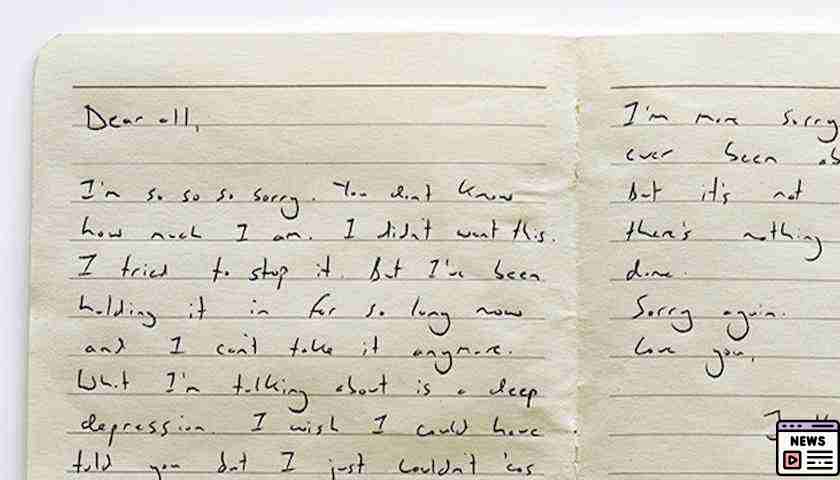 Dear all,
I'm so so so sorry. You don't know
how much I am. I didn't want this.
I tried to stop it. But I've been
holding it in for so long now
and I can't take it anymore.
What I'm talking about is a deep
depression. I wish I could have
told you but I just couldn't 'cos
I'm more sorry
ever been
But it's not
there's nothing
done.
Sorry again.
Love you,
NEWS